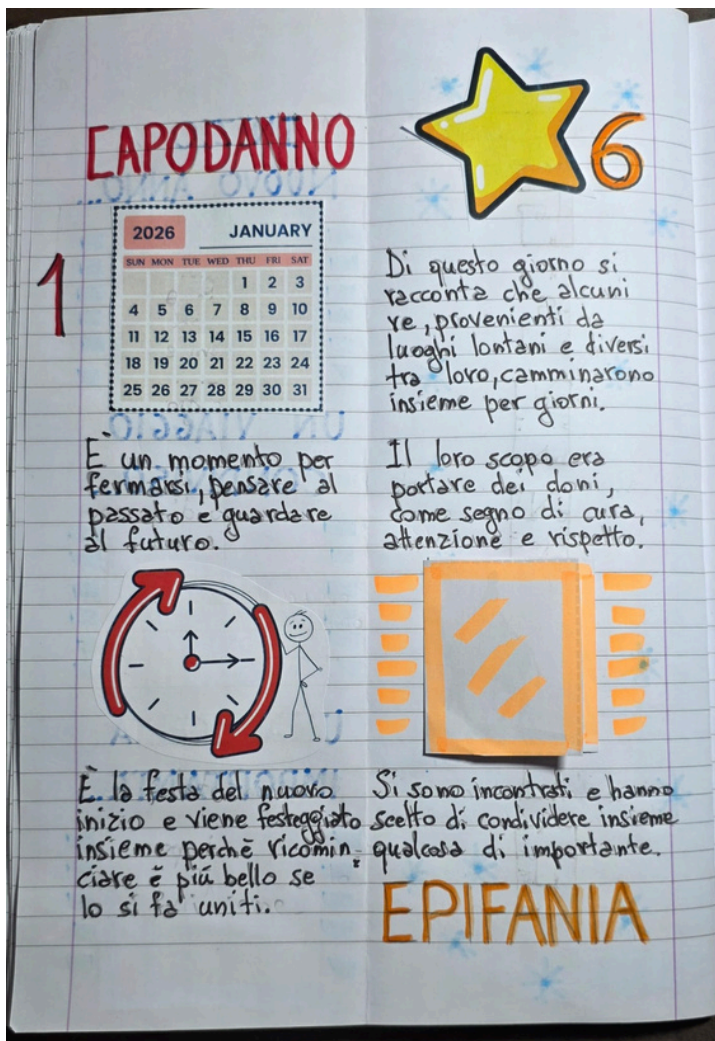 CAPODANNO
1
2026 JANUARY
SUN MON TUE WED THU FRI SAT
1 2 3
4 5 6 7 8 9 10
11 12 13 14 15 16 17
18 19 20 21 22 23 24
25 26 27 28 29 30 31
È un momento per
fermarsi, pensare al
passato e guardare
al futuro.
È la festa del nuovo
inizio e viene festeggiato
insieme perchè ricomin-
ciare è più bello se
lo si fa uniti.
6
Di questo giorno si
racconta che alcuni
re, provenienti da
luoghi lontani e diversi
tra loro, camminarono
insieme per giorni.
Il loro scopo era
portare dei doni,
come segno di cura,
attenzione e rispetto.
Si sono incontrati e hanno
scelto di condividere insieme
qualcosa di importante.
EPIFANIA